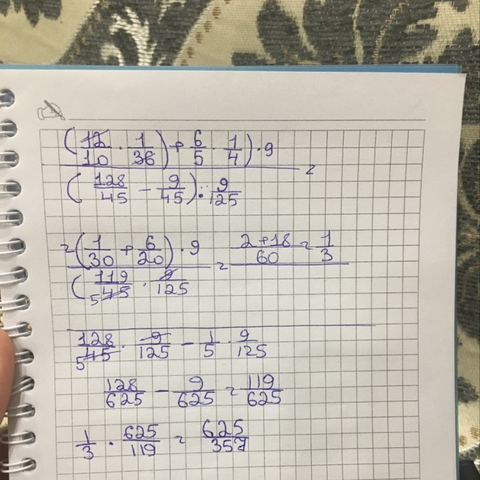 (12/10 · 1/36) + 6/5 · 1/4) · 9
(128/45 - 9/45) : 9/125 =
= (1/30 + 6/20) · 9 = 2+18/60 = 1/3
(119/45 5 · 9/125
128/45 5 · 9/125 - 1/5 · 9/125
128/625 - 9/625 = 119/625
1/3 · 625/119 = 625/357